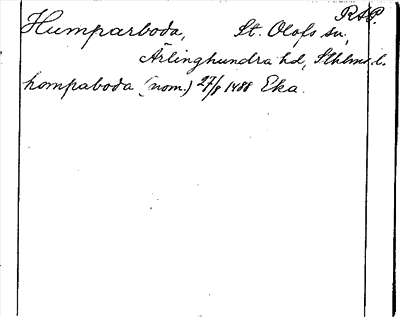 RAP.
Humparboda, St. Olofs sn,
Ärlinghundra hd, Sthlms l.
hompaboda (nom.) 27/8 1488 Eka.